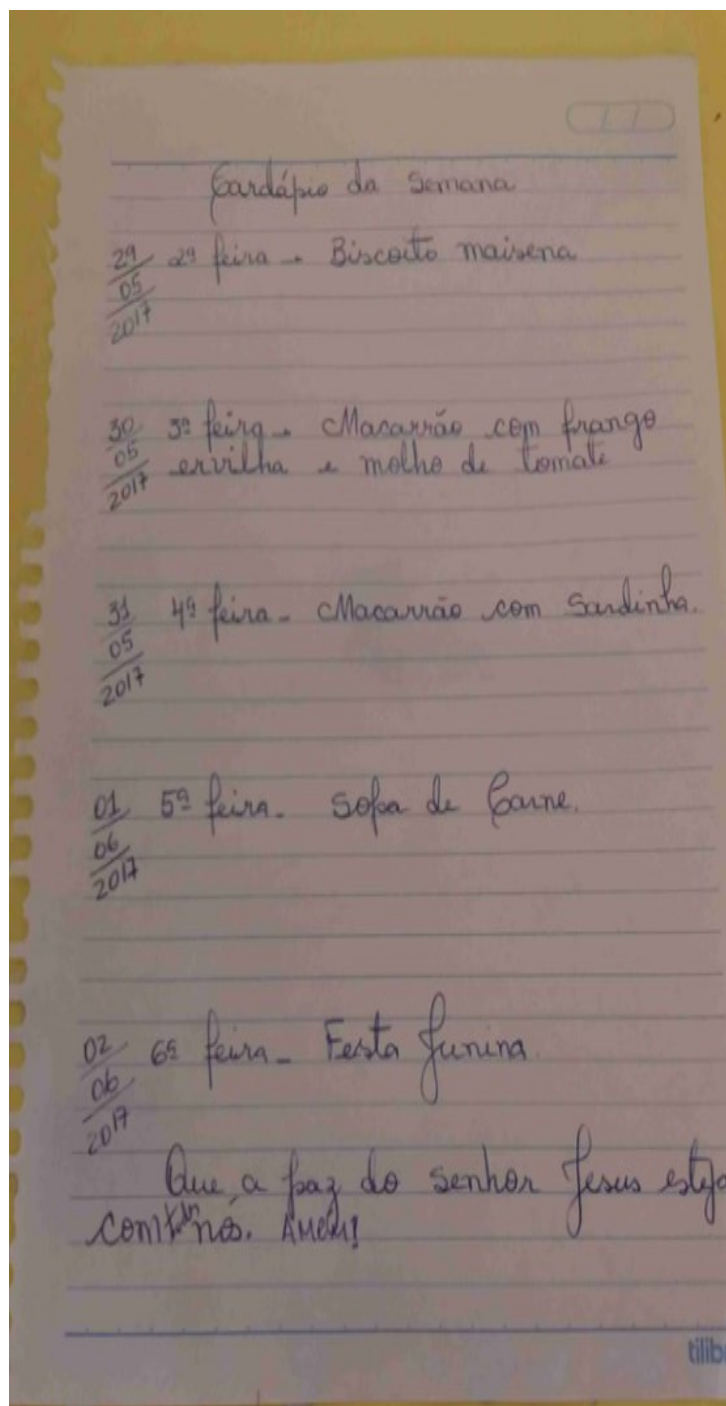 Cardápio da Semana
29/05/2017 2ª feira - Biscoito maisena
30/05/2017 3ª feira - Macarrão com frango
ervilha e molho de tomate
31/05/2017 4ª feira - Macarrão com Sardinha.
01/06/2017 5ª feira - Sopa de Carne.
02/06/2017 6ª feira - Festa Junina.
Que a paz do senhor Jesus esteja
com nós. Amém!